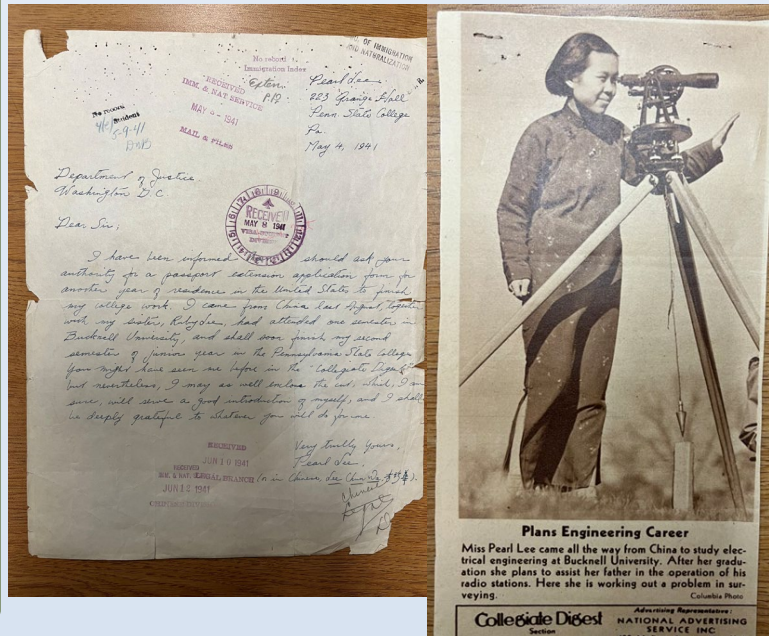 No record
Immigration Index
OF IMMIGRATION
AND NATURALIZATION
RECEIVED
IMM. & NAT. SERVICE
MAY 6 - 1941
MAIL & FILES
Exten.
No record
Student
5-9-41
Pearl Lee
223 Grange Hall
Penn. State College
Pa.
May 4, 1941
Department of Justice
Washington D.C.
RECEIVED
MAY 8 1941
Dear Sir;
I have been informed should ask your
authority for a passport extension application form for
another year of residence in the United States to finish
my college work. I came from China last August, together
with my sister, Ruby Lee, had attended one semester in
Bucknell University, and shall soon finish my second
semester of junior year in the Pennsylvania State College.
You might have seen me before in the "Collegiate Digest"
but nevertheless, I may as well enclose the cut, which, I'm
sure, will serve a good introduction of myself, and I shall
be deeply grateful to whatever you will do for me.
Very truly yours,
Pearl Lee.
(or in Chinese, Lee
RECEIVED
JUN 10 1941
RECEIVED
IMM. & NAT. LEGAL BRANCH
JUN 12 1941
Chinese
Plans Engineering Career
Miss Pearl Lee came all the way from China to study elec-
trical engineering at Bucknell University. After her gradu-
ation she plans to assist her father in the operation of his
radio stations. Here she is working out a problem in sur-
veying.
Columbia Photo
Collegiate Digest
Section
Advertising Representative:
NATIONAL ADVERTISING
SERVICE INC